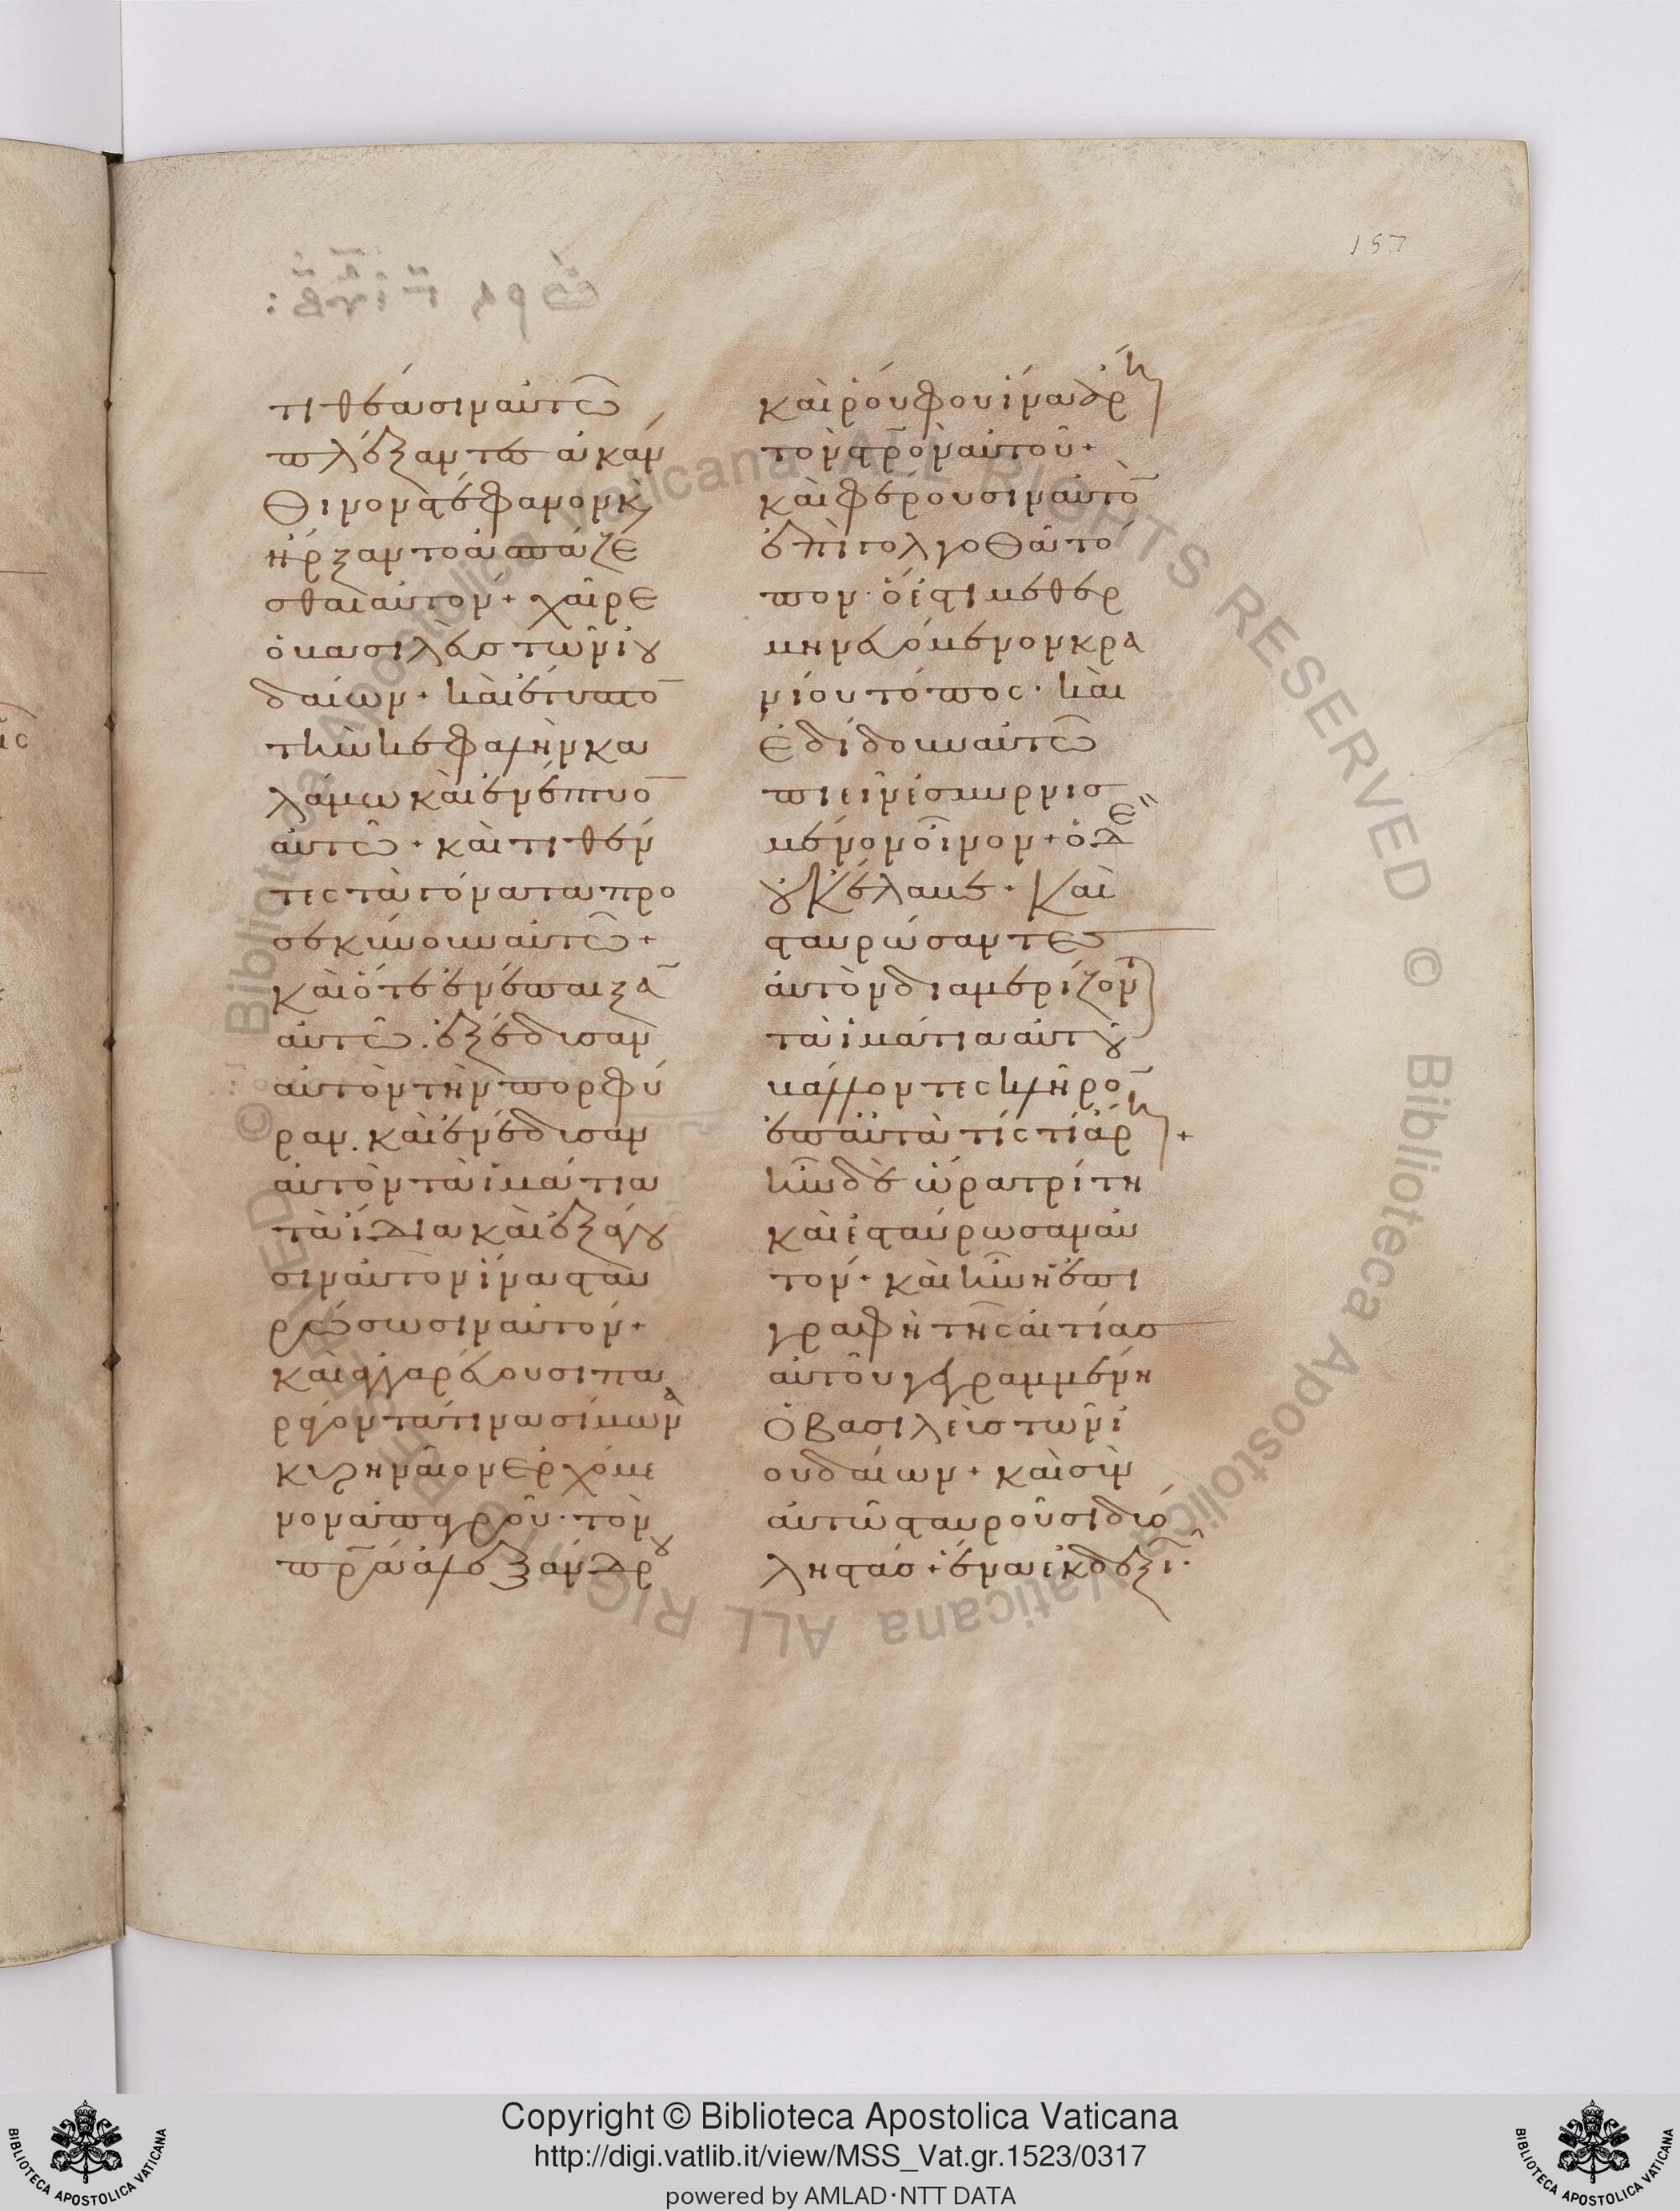 157
τιθέασιν αὐτῶ
πλέξαντες ἀκάν
θινον στέφανον κ(αὶ)
ἤρξαντο ἀσπάζε
σθαι αὐτόν + χαῖρε
ὁ βασιλεὺς τῶν ἰου
δαίων + καὶ ἔτυπτο̅
τὴν κεφαλὴν κα
λάμω καὶ ἐνέπτυο̅
αὐτῶ + καὶ τιθέν
τες τὰ γόνατα προ
σεκύνουν αὐτῶ +
καὶ ὅτε ἐνέπαιξα̅
αὐτῶ. ἐξέδυσαν
αὐτὸν τὴν πορφύ
ραν. καὶ ἐνέδυσαν
αὐτὸν τὰ ἱμάτια
τὰ ἴδια καὶ ἐξάγου
σιν αὐτὸν ἵνα σταυ
ρώσωσιν αὐτόν +
καὶ ἀγγαρεύουσι πα
ράγοντά τινα σίμωνα
κυρηναῖον ἐρχόμε
νον ἀπ ἀγροῦ · τὸν
πρ̅α ἀλεξάνδρου
καὶ ῥούφου ἵνα ἄρη
τὸν στρ̅ὸν αὐτοῦ +
καὶ φέρουσιν αὐτὸ̅
ἐπὶ γολγοθᾶ τό
πον · ὅ ἐστι μεθερ
μηνευόμενον κρα
νίου τόπος · καὶ
ἐδίδουν αὐτῶ
πιεῖν ἐσμυρνισ
μένον οἶνον + ὁ δὲ
οὐκ ἔλαβε · Καὶ
σταυρώσαντες
αὐτὸν διαμερίζον(ται)
τὰ ἱμάτια αὐτοῦ
βάλλοντες κλῆρο̅
ἐπ αὐτὰ τίς τί ἄρη +
ἦν δὲ ὥρα τρίτη
καὶ ἐσταύρωσαν αὐ
τόν + καὶ ἦν ἡ ἐπι
γραφὴ τῆς αἰτίας
αὐτοῦ γεγραμμένη
Ὁ βασιλεὺς τῶν ἰ
ουδαίων + καὶ σὺν
αὐτῶ σταυροῦσι δύο
ληστάς + ἕνα ἐκ δεξι(ῶν) ·
Copyright © Biblioteca Apostolica Vaticana
http://digi.vatlib.it/view/MSS_Vat.gr.1523/0317
powered by AMLAD·NTT DATA
BIBLIOTECA APOSTOLICA VATICANA
BIBLIOTECA APOSTOLICA VATICANA